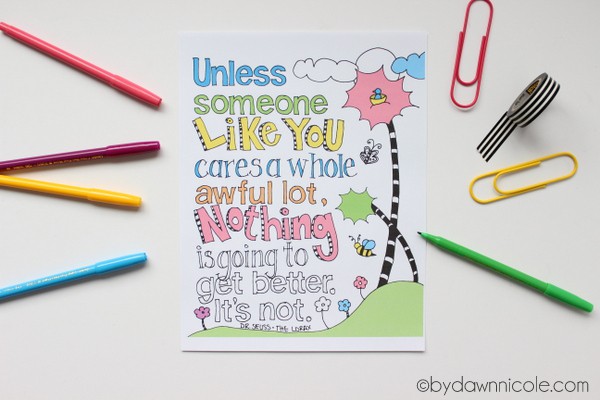 Unless
someone
Like You
cares a whole
awful lot,
Nothing
is going to
get better.
It's not.
DR SEUSS • THE LORAX
©bydawnnicole.com